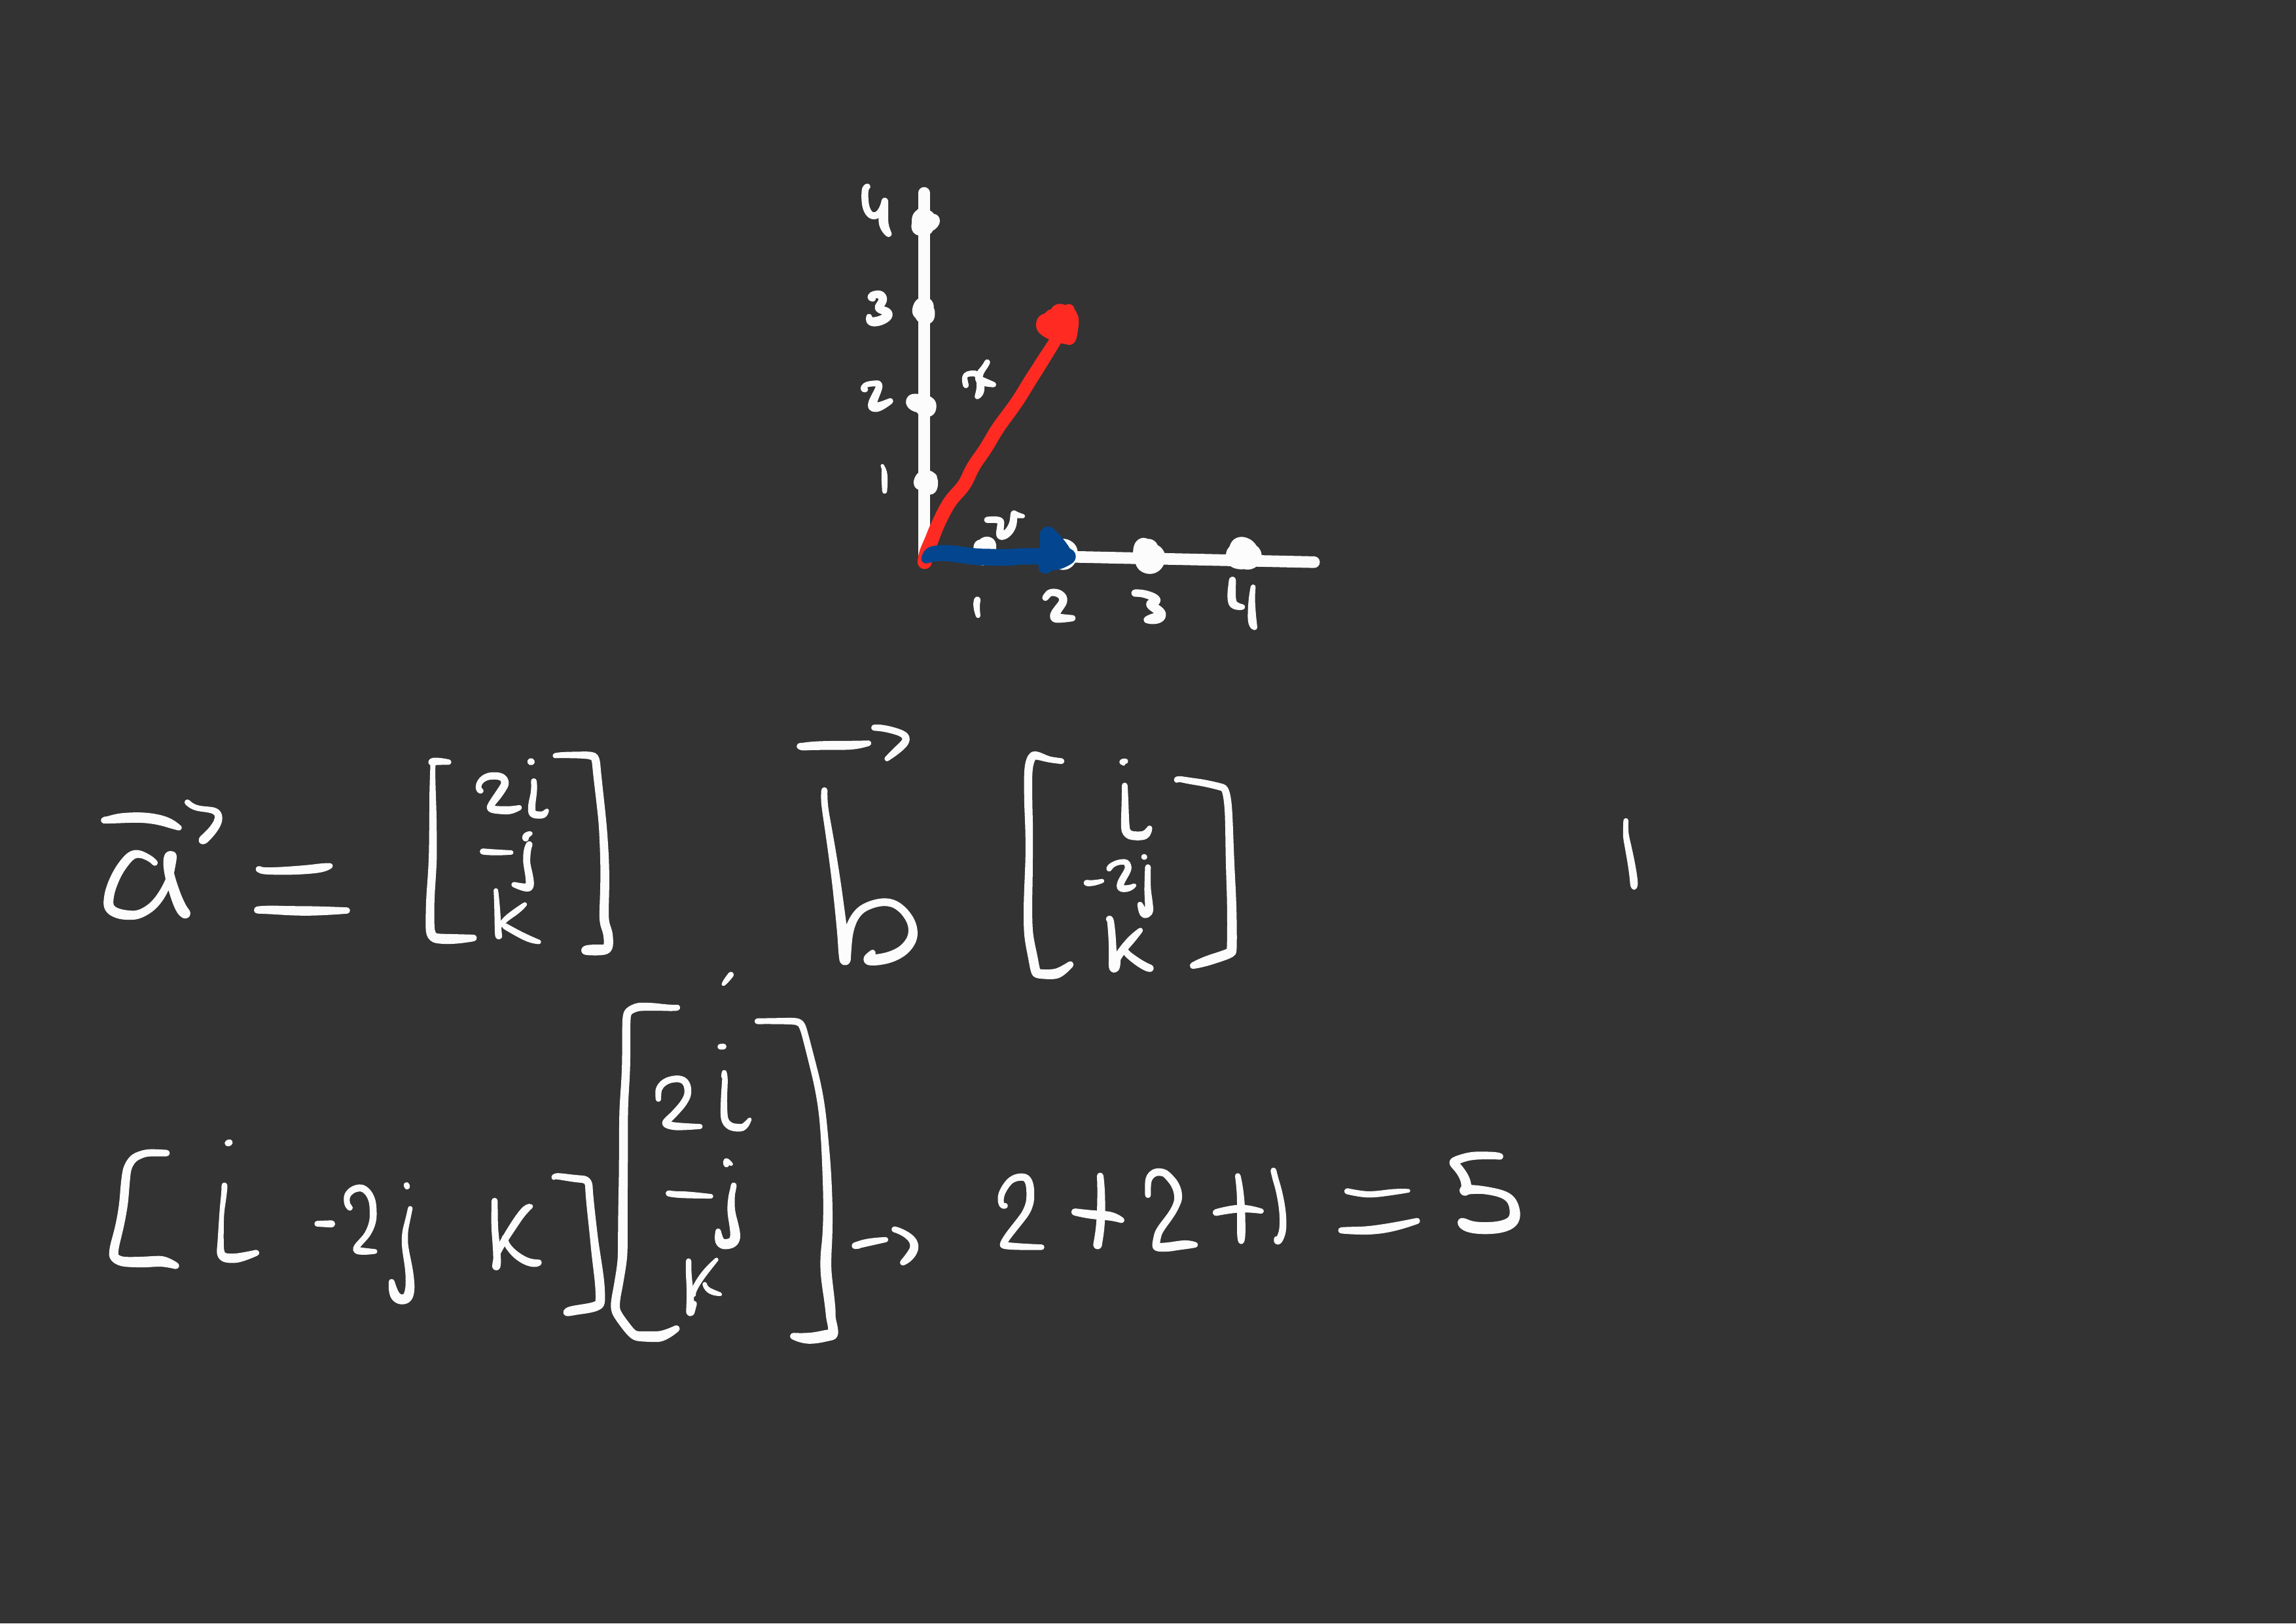 4
3
2
x
1
v
1 2 3 4
a⃗ = [2i -j k] b⃗ [i -2j k] 1
[i -2j k] [2i -j k] → 2+2+1 = 5